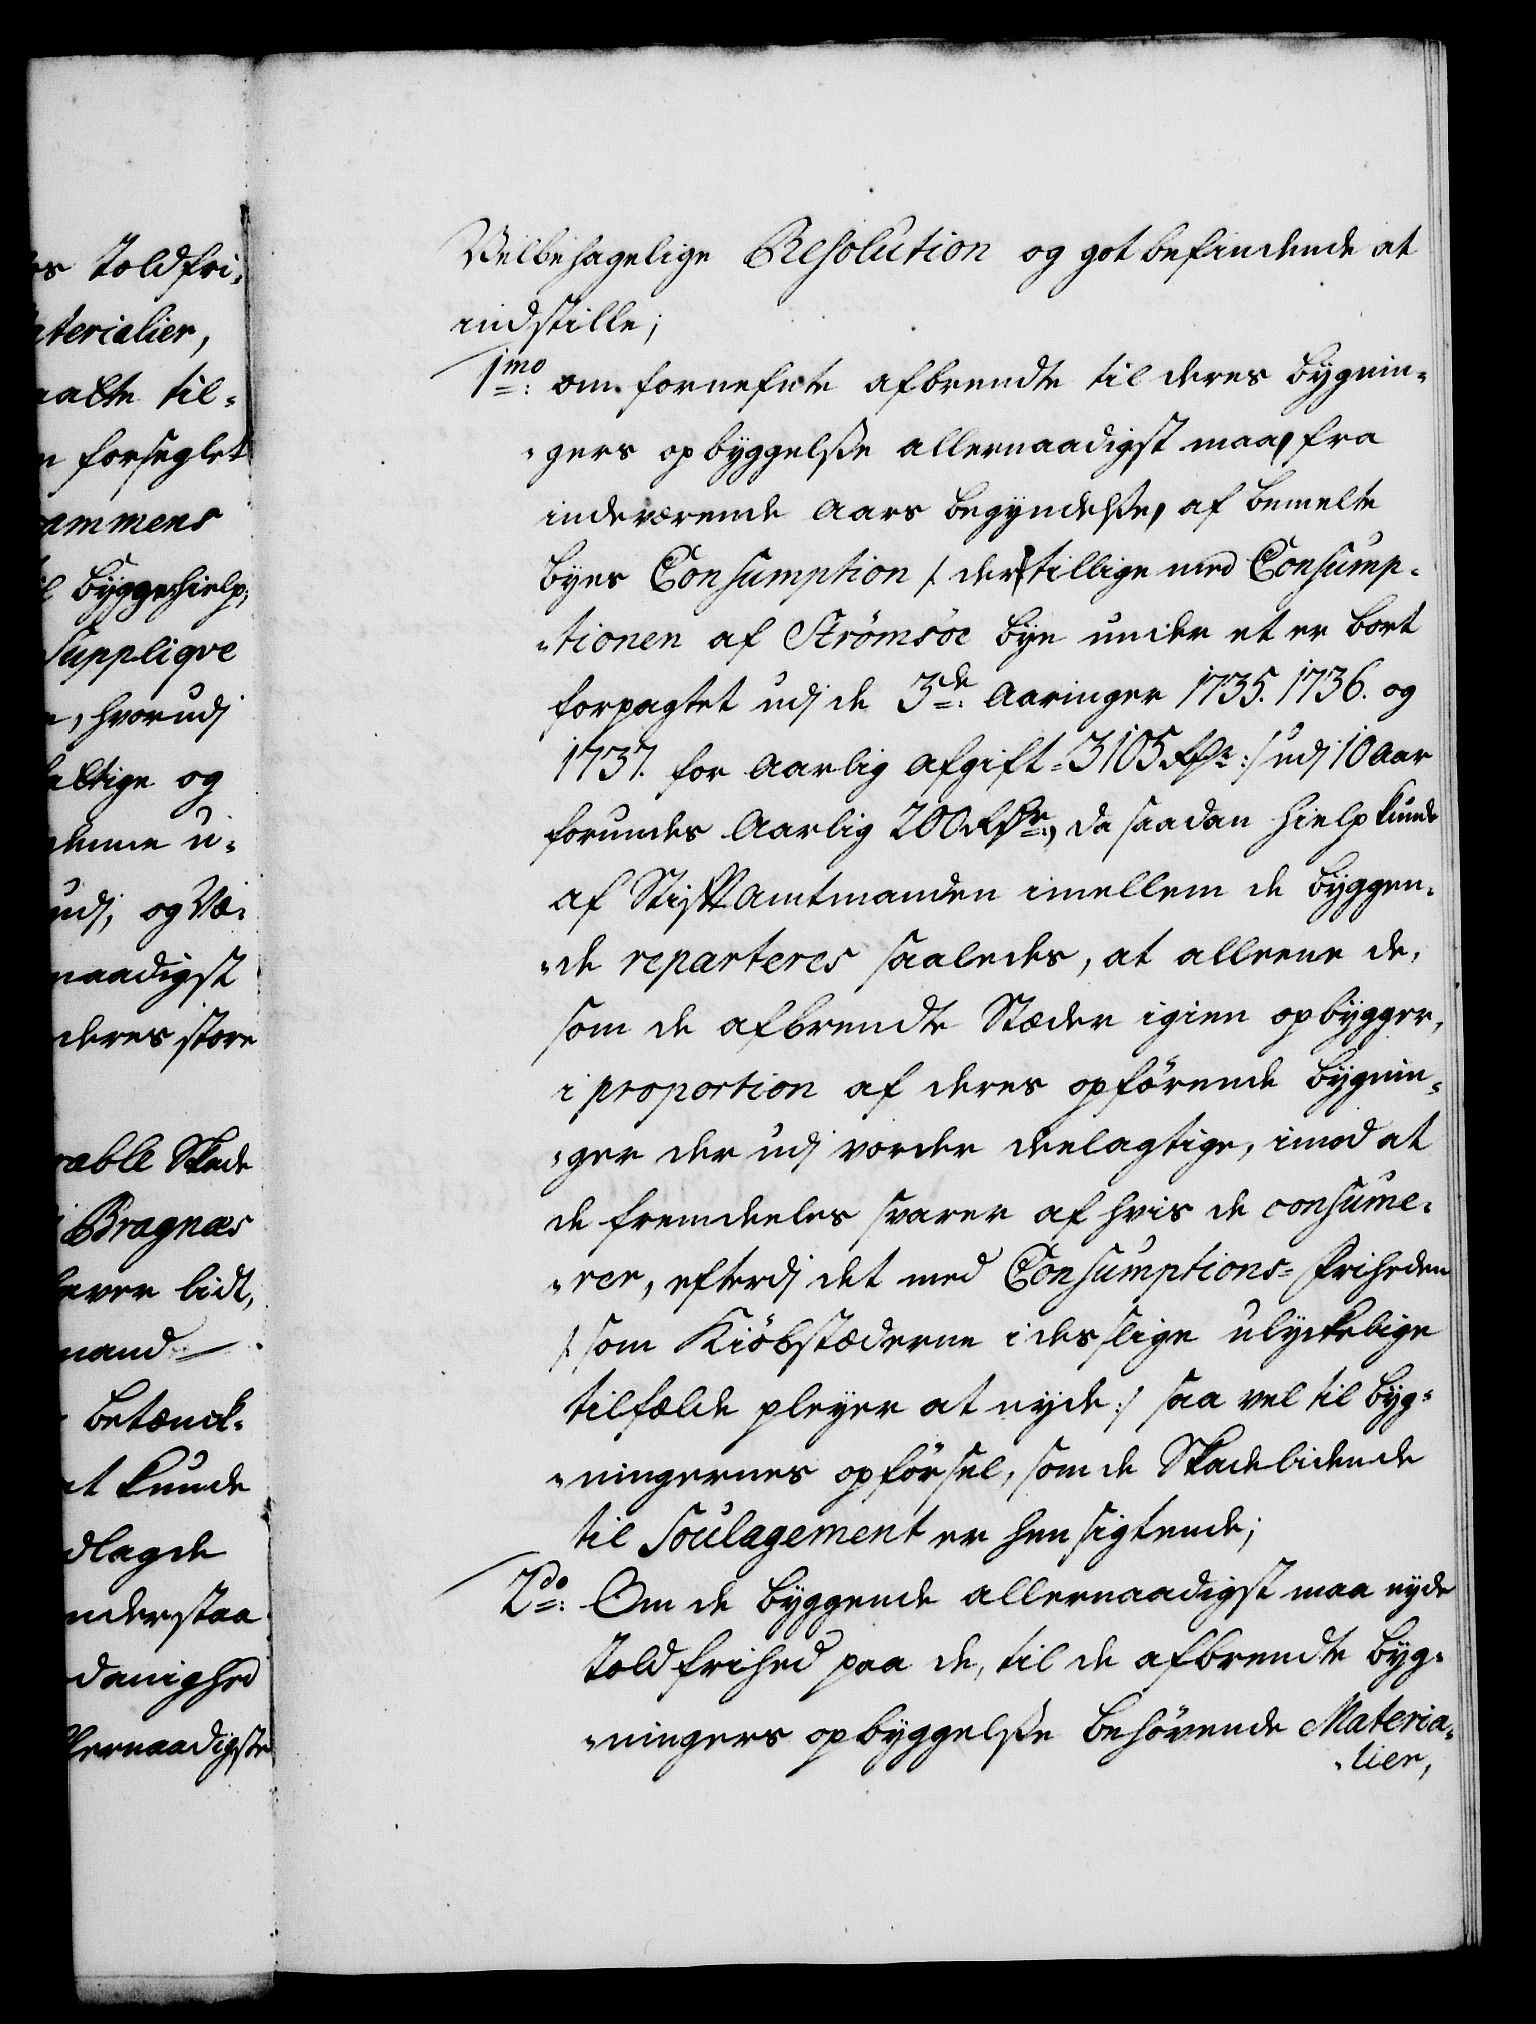 es Toldfri-
aterialier,
aalte til-
n forseglet
ammens
l byggehielp,
Suppliqve
e, hvorudj
altige og
denne u-
udj, og Væ-
naadigst
deres store
rable Skade
i Bragnæs
haver lidt,
mand
betænck-
at kunde
dlagde
nderstaa
danighed
llernaadigste
Velbehagelige Resolution og got befindende at
indstille;
1mo: om fornefnte afbrendte til deres bygnin-
-gers opbyggelsße allernaadigst maa, fra
indeværende Aars begyndelsße, af bemelte
byes Consumption /: der tillige med Consump-
-tionen af Strömsöe bye under et er bort
forpagtet udj de 3de: Aaringer 1735. 1736. og
1737. for Aarlig afgift 3105 Rdr :/ udj 10 Aar
forundes Aarlig 200 Rdr:, da saadan hielp kunde
af Stiftamtmanden imellem de byggen-
-de reparteres saaledes, at alleene de,
som de afbrendte Stæder igien opbygger,
i proportion af deres opförende bygnin-
-ger der udj vorder deelagtige, imod at
de fremdeeles svarer af hvis de consume-
-rer, efterdj det med Consumptions-friheden
/: som Kiöbstæderne i des slige ulyckelige
tilfælde pleyer at nyde :/ saa vel til byg-
-ningernes opförsel, som de Skadelidende
til Soulagement er hensigtende;
2do: Om de byggende allernaadigst maa nyde
Toldfrihed paa de, til de afbrendte byg-
-ningers opbyggelsße behövende Materia-
-lier,